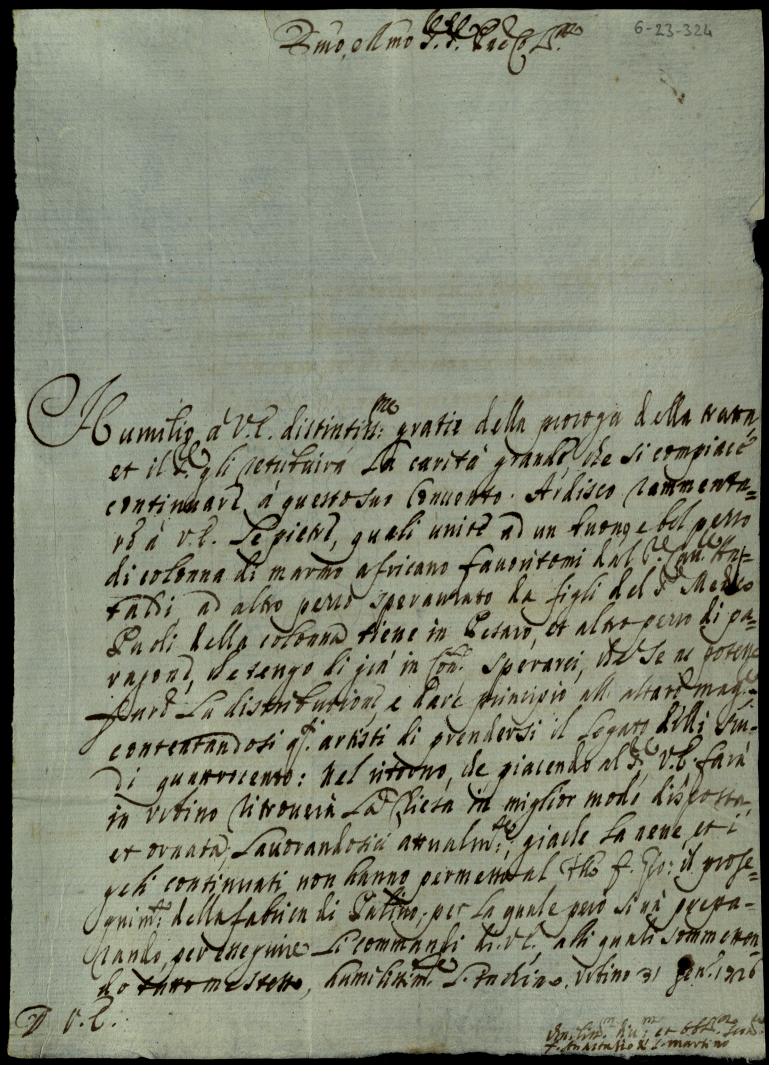 6-23-324
Rmo, e Illmo Sr. Sr. Pne Co.
Humilio à V.E. distintissme gratie della proroga della tratta,
et il Sr. gli retribuirà La carità grande, che si compiace
continuare à questo suo Convento. Ardisco rammenta=
re à V.E. Le pietre, quali unite ad un buono e bel pezzo
di colonna di marmo africano favoritomi dal Sr. Cav.
ad altro pezzo speranzato da figli del Sr. Medico
Paoli della colonna tiene in Pesaro, et altro pezzo di pa=
ragone, che tengo di già in Conto. sperarei, che se ne potesse
fare La distributione, e dare principio all' altare magre.
contentandosi qti. artisti di prendersi il Legato delli scu=
di quattrocento: nel ritorno, che piacendo al Sr. V.E. farà
in Urbino ritroverà La Chiesa in miglior modo disposta,
et ornata, Lavorandosici attualmte., giache La neve, et i
geli continuati non hanno permesso al f. Gio: il prose=
guimto: della fabrica di Palino; per La quale però si và prepa=
rando, per eseguire Li commandi di V.E. alli quali sommetten
do tutto me stesso, humilissimte. L'inchino. Urbino 31 Genro. 1726
D V.E.
et obblmo
f. Anastasio di S. Martino